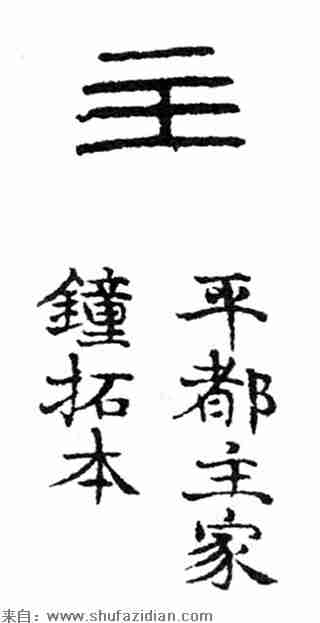 主
平都主家
鐘拓本
来自：www.shufazidian.com